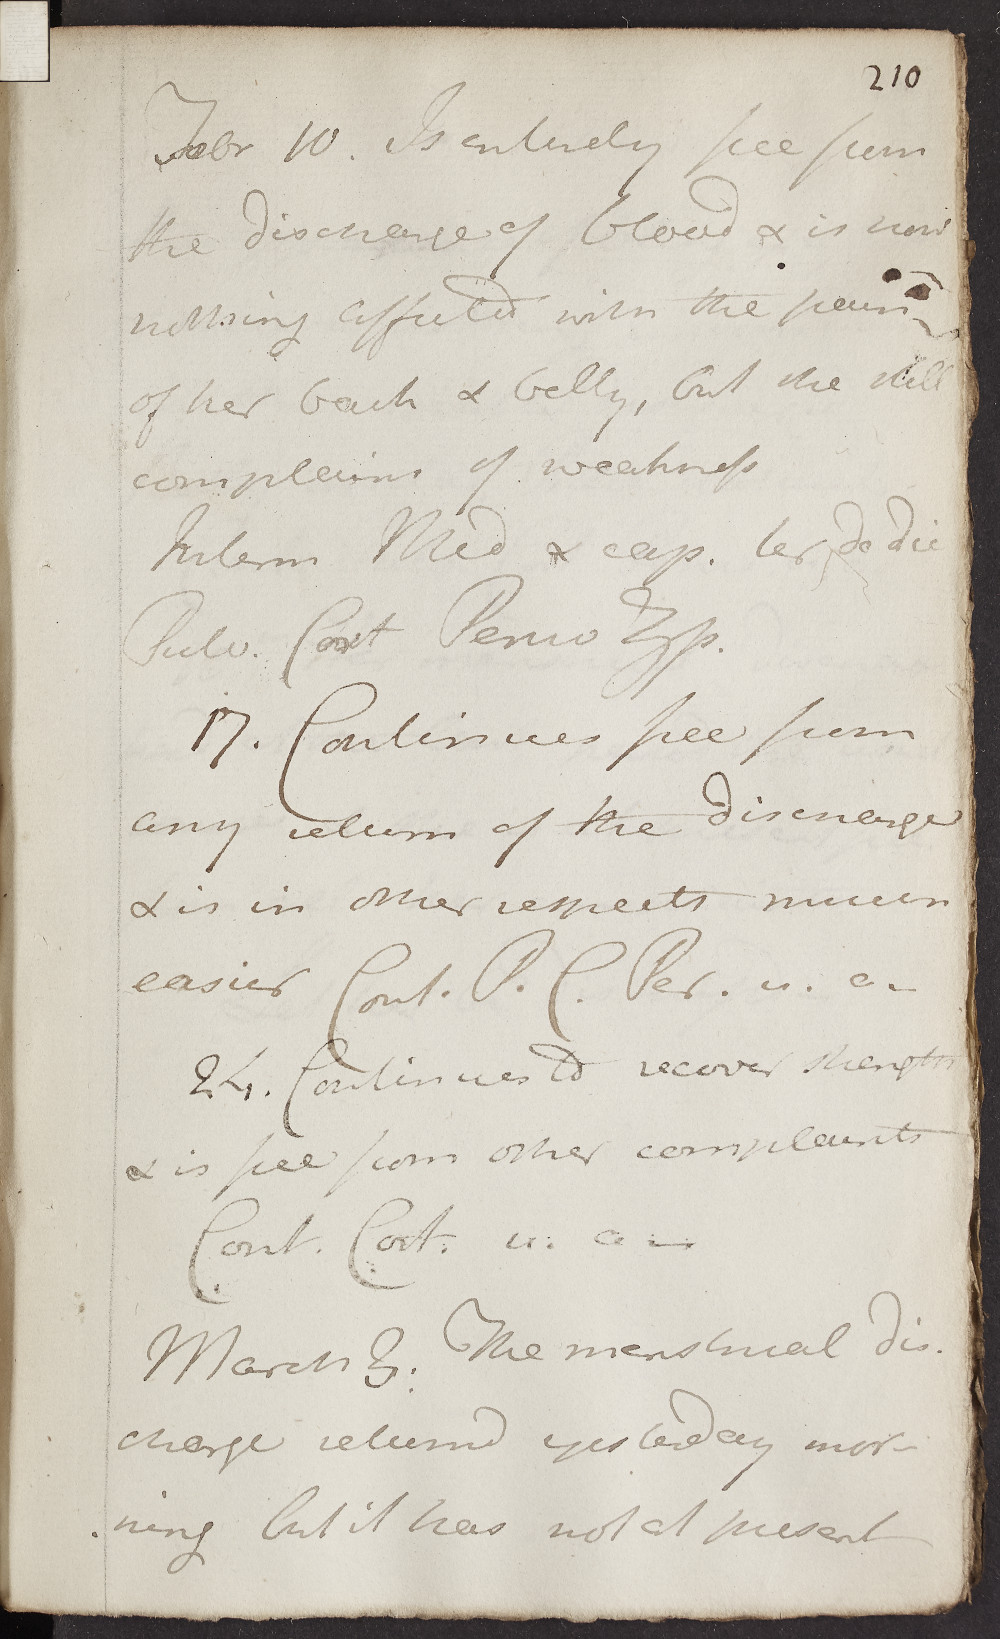 210
Febr 10. Is entirely free from
the discharge of blood & is now
nothing affected with the pain
of her back & belly, but she still
complains of weakness
Interm Med & cap. ter de die
Pulv. Cort Peruv ʒſs.
17. Continues free from
any return of the discharge
& is in other respects much
easier Cont. P. C. Per. u. a_
24. Continues to recover strength
& is free from other complaints
Cont. Cort. u. a_
March 3. The menstrual dis.
charge returnd yesterday mor-
ning but it has not at present